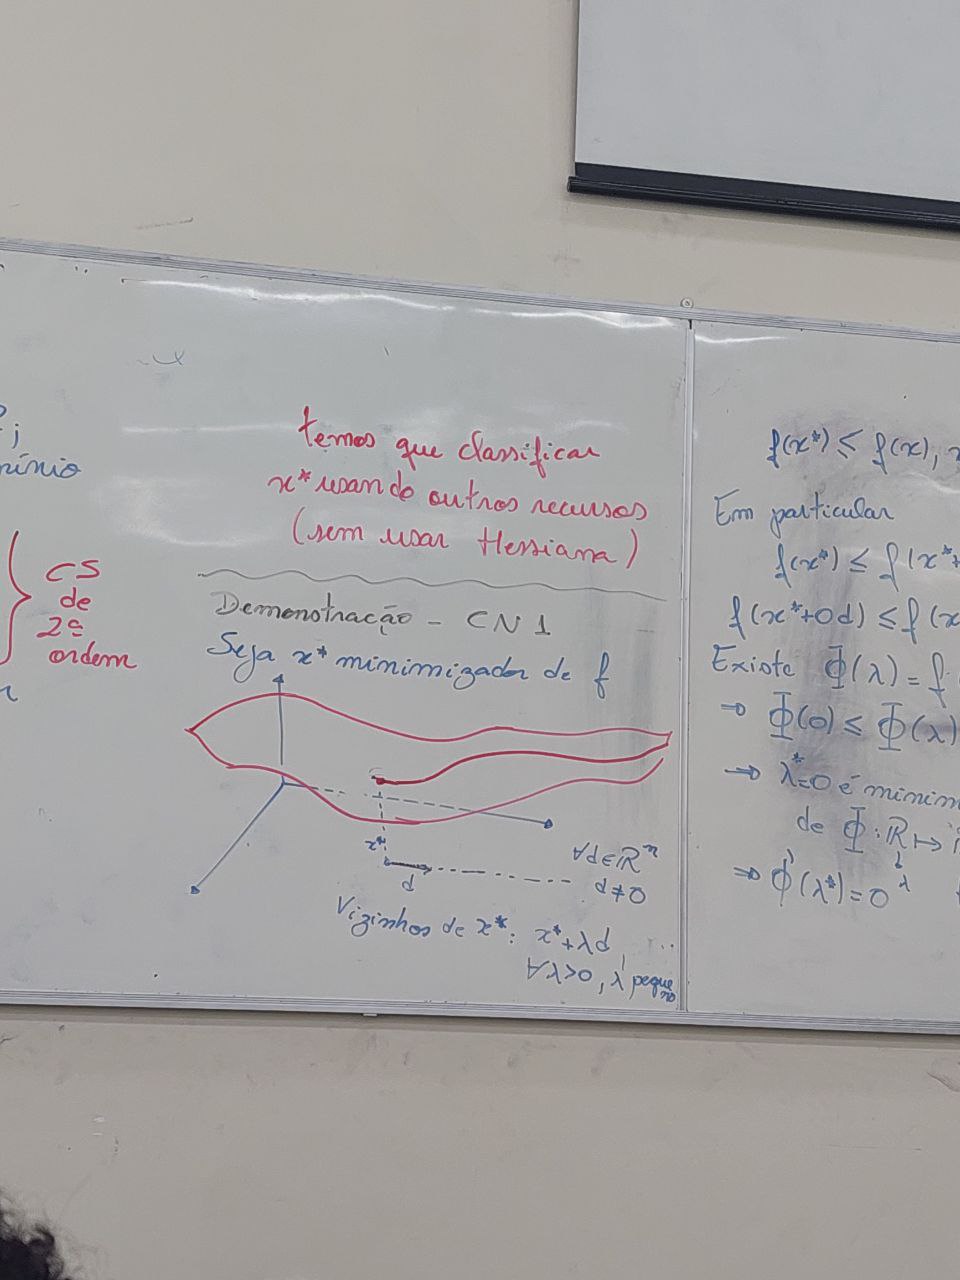 temos que classificar
x* usando outros recursos
(sem usar Hessiana)
CS
de
2ª
ordem
Demonstração - CN1
Seja x* minimizador de f
x*
d
∀d∈ℝⁿ
d≠0
Vizinhos de x*: x*+λd, ...
∀λ>0, λ pequeno
f(x*) ≤ f(x),
Em particular
f(x*) ≤ f(x*+
f(x*+0d) ≤ f(x
Existe Φ(λ) = f
⇒ Φ(0) ≤ Φ(λ)
→ λ*=0 é minim
de Φ: ℝ ↦
⇒ Φ'(λ*) = 0